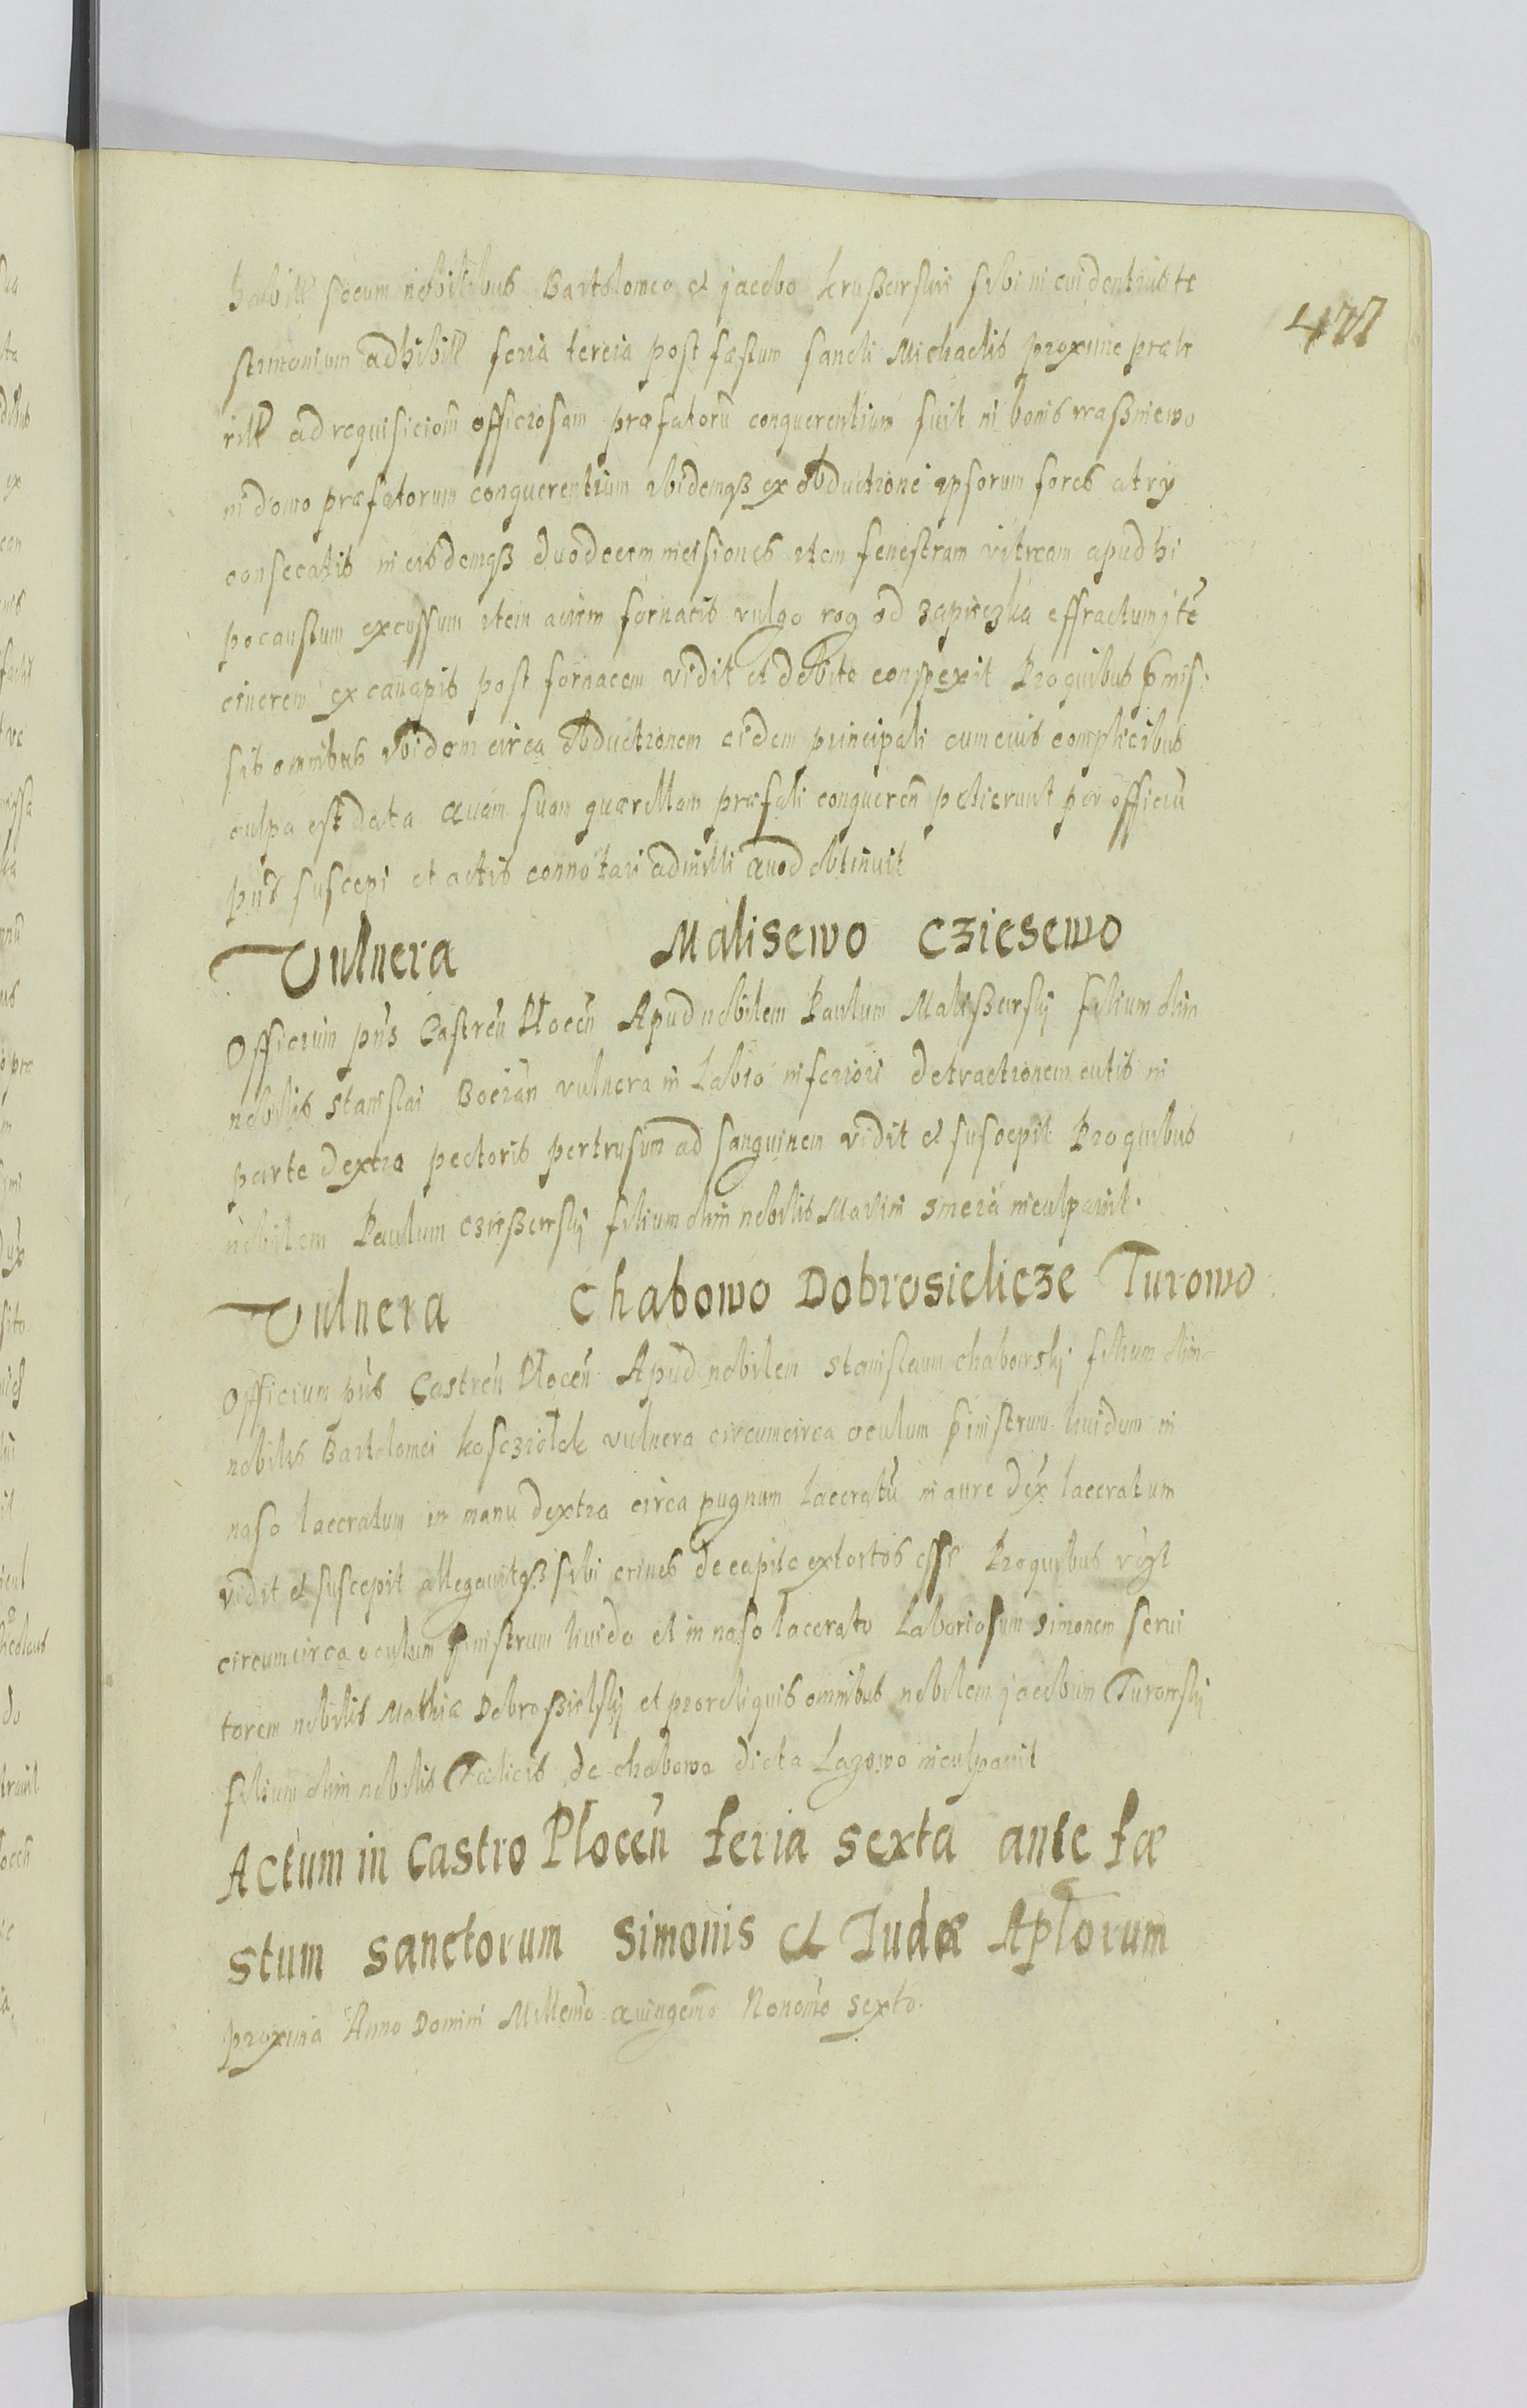 477
habitis secum nobilibus Bartolomeo et jacobo krusßewskii sibi in evidentius te
stimonium adhibitis feria tercia post fæstum sancti Michaelis proxime præte
ritis ad requisiciom officiosam præfatorū conquerentium fuit in bonis
in domo præfatorum conquerentium ibidemqß ex obductione ipsorum fores atrÿ
consecatis in eisdemqß duodecem incisiones item fenestram vitream apud hi
pocaustum excussum item aciem fornacis vulgo rog od zapieczka effractum ite
cinerem post fornacem vidit et debite conspexit Pro quibus pmis
sis omnibus ibidem circa obductionem eidem principali cum eius complicibus
culpa est data Quam suam quærellam præfati conqueren̄ petierunt per officiū
pn̄s suscepi et actis connotari Quod obtinuit
Vulnera Malisewo Cziesewo
Officium pn̄s Castren̄ Plocen̄ Apud nobilem Paulum Malisßewskÿ filium olim
nobilis Stanislai Bocian vulnera in Labro inferiori detractionem cutis in
parte dextra pectoris pertrusum ad sanguinem vidit et suscepit Pro quibus
nobilem Paulum Cziesßewskÿ filium olim nobilis Martini inculpavit.
Vulnera Chabowo Dobrosielicze Turowo
Officium pn̄s Castren̄ Plocen̄ Apud nobilem Stanislaum chabowskÿ filium olim
nobilis Bartolomei koscziołek vulnera circumcirca oculum sinistrum liuidum in
naso laceratum in manu dextra circa pugnum laceratū in aure dex̄ laceratum
vidit et suscepit allegavitqß sibi crines de capite extortos esse Pro quibus vidzt
circumcirca oculum sinistrum liuido et in naso lacerato Laboriosum Simonem serui
torem nobilis Mathiæ Dobrosßielskÿ et pro reliquis omnibus nobilem jacobum Turowskÿ
filium olim nobilis Fœlicis de chabowo dicta Lazowo inculpavit
Actum in Castro Plocen̄ feria sexta ante fæ
stum sanctorum Simonis et Judæ Aplorum
proxima Anno Domini Millem̄o Quingem̄o Nonem̄o sexto.